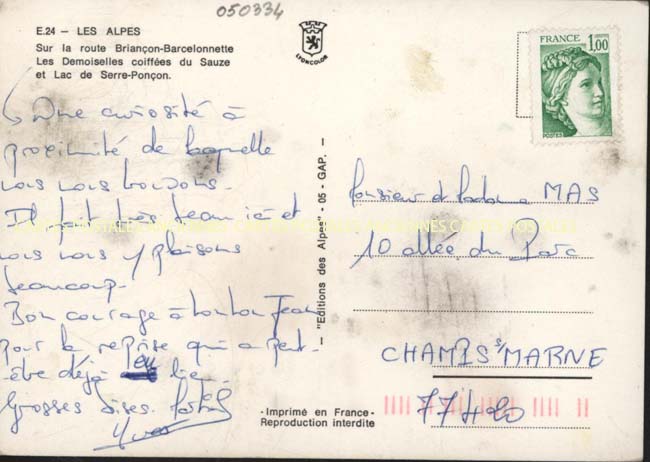 050334
E.24 — LES ALPES
Sur la route Briançon-Barcelonnette
Les Demoiselles coiffées du Sauze
et Lac de Serre-Ponçon.
LYONCOLOR
FRANCE 1,00
POSTES
Une curiosité à
proximité de laquelle
nous nous trouvons.
Il fait très beau ici et
nous nous y plaisons
beaucoup.
Bon courage à tonton Jean
pour la reprise qui a peut-
être déjà eu lieu.
Grosses bises.
Yves
— "Editions des Alpes" - 05 - GAP. —
Monsieur et Madame MAS
10 allée du Parc
CHAMPS S/MARNE
77420
- Imprimé en France -
Reproduction interdite